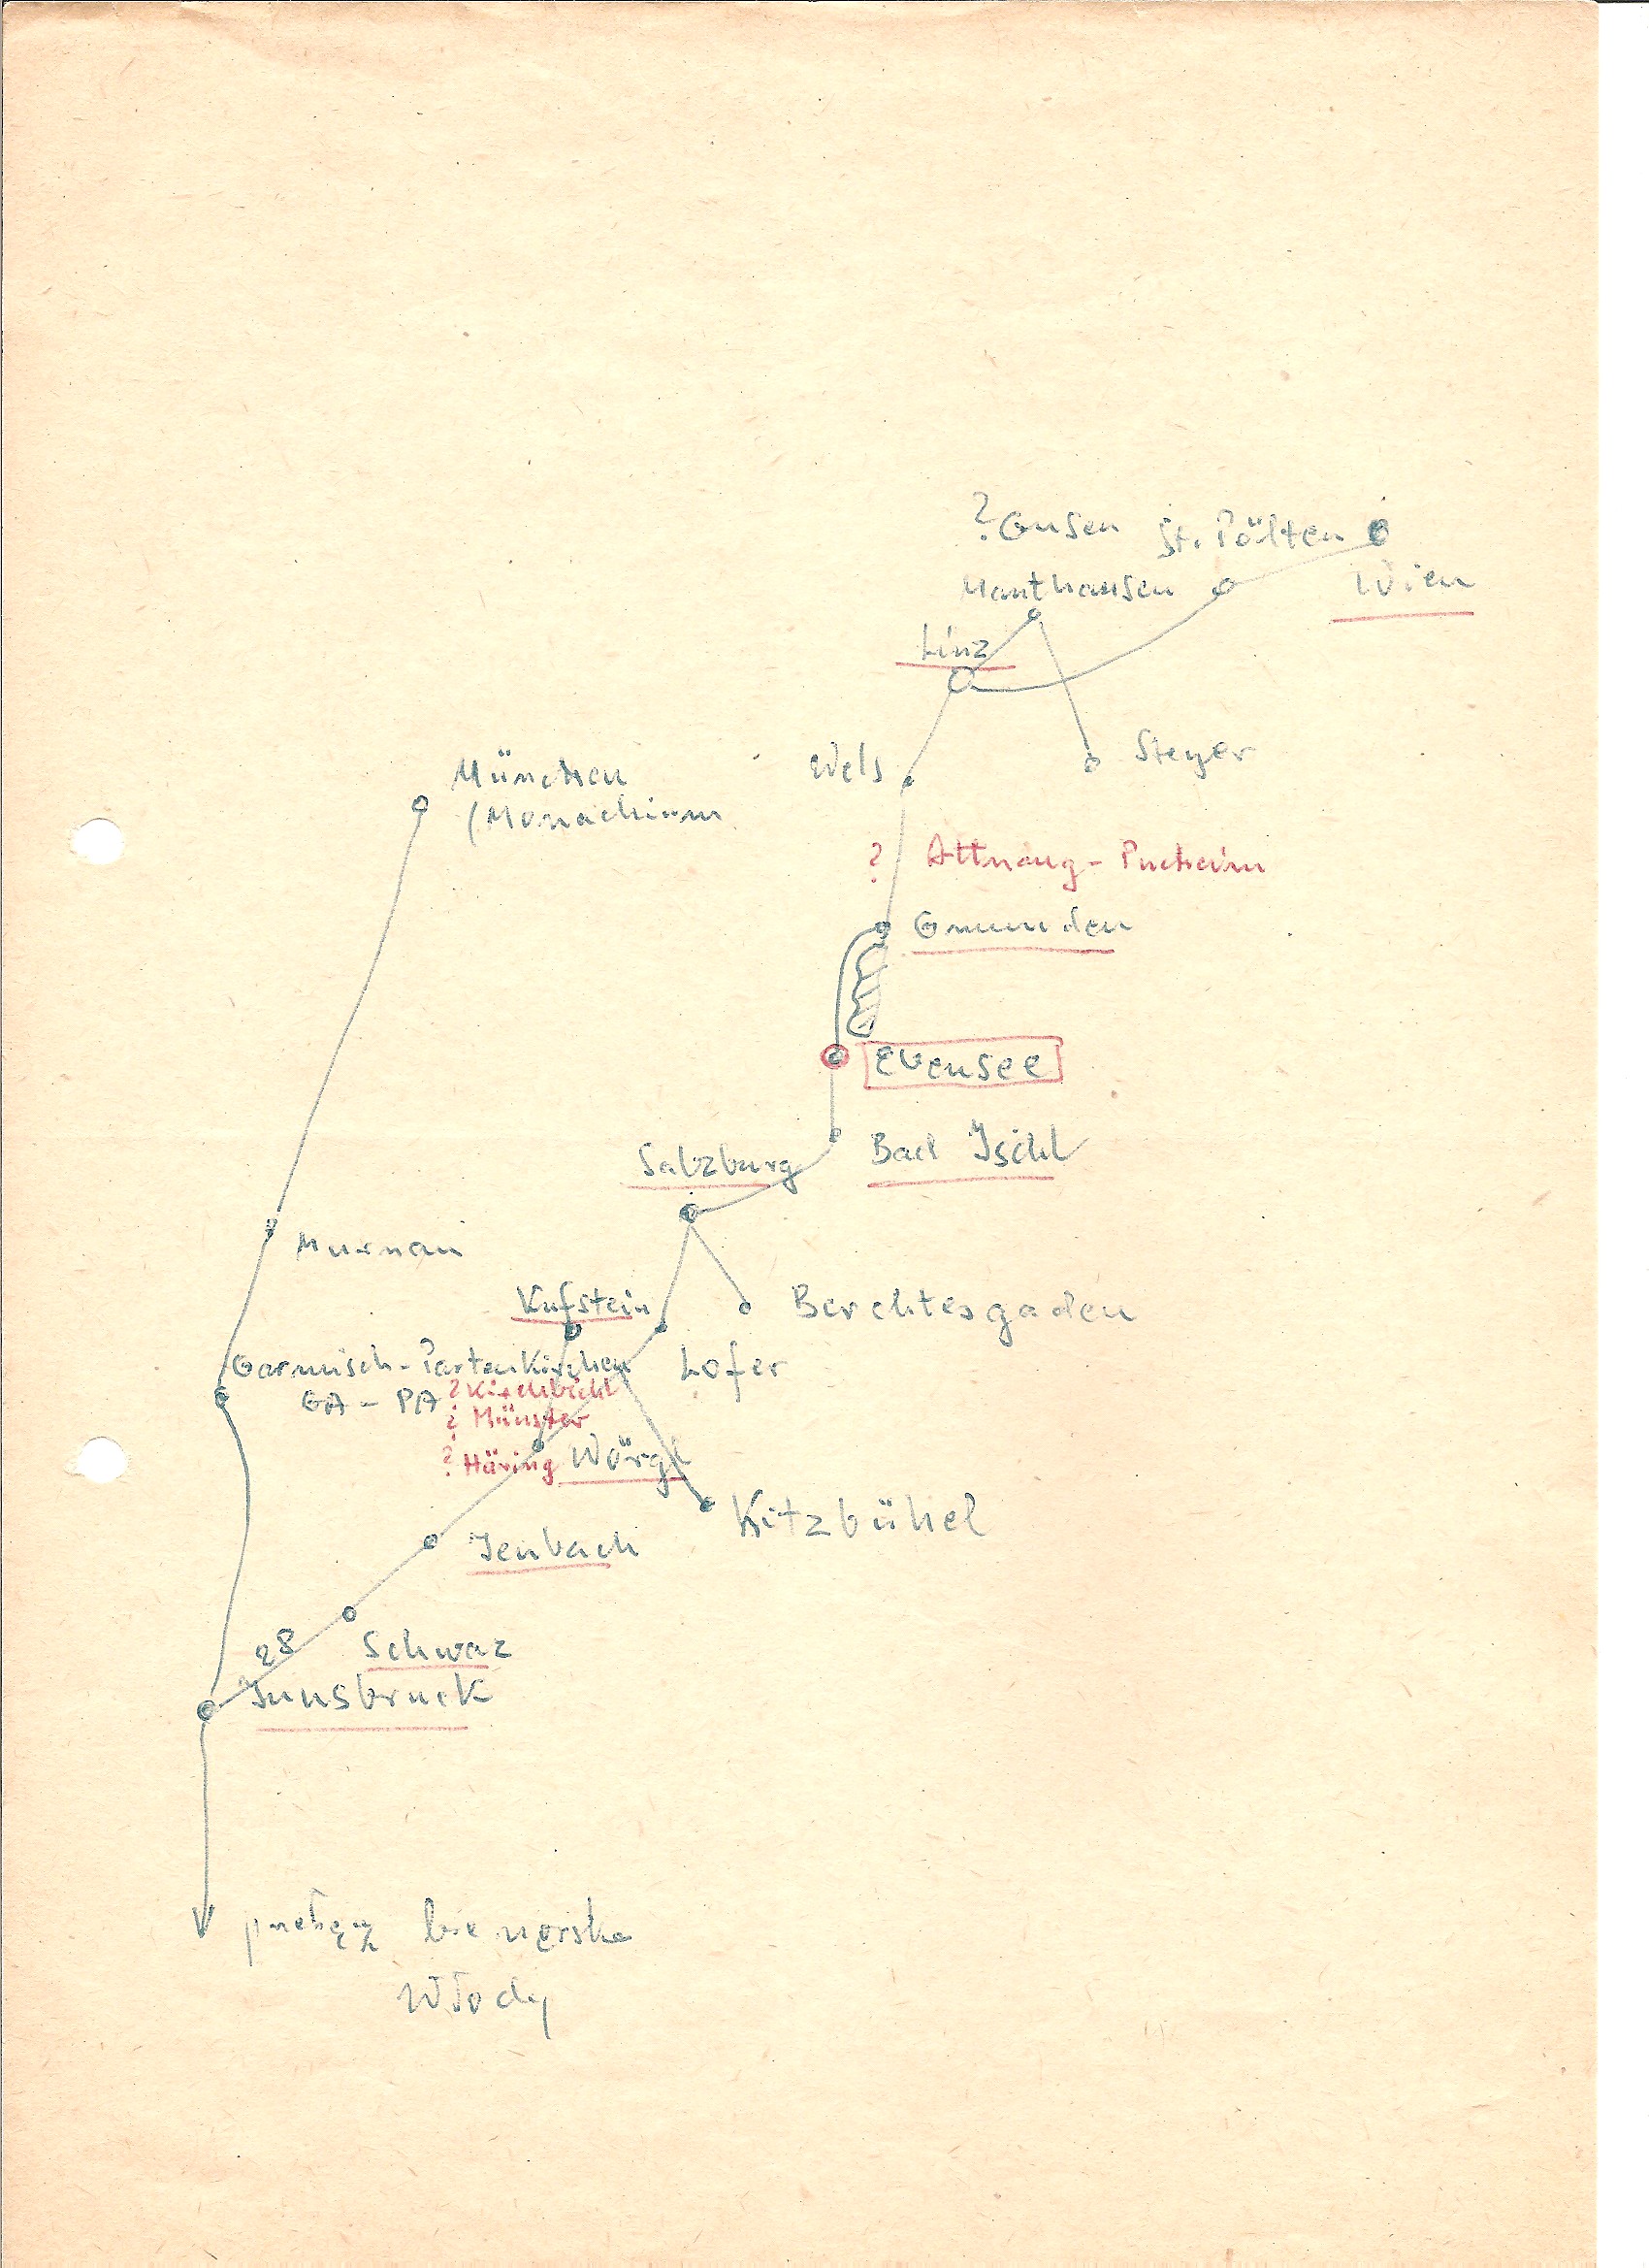 ? Gusen St. Pölten
Mauthausen Wien
Linz
Wels Steyer
München
(Monachium
? Attnang-Pucheim
Gmunden
Ebensee
Bad Ischl
Salzburg
Murnau
Kufstein Berchtesgaden
Garmisch-Partenkirchen Lofer
GA - PA ? Kirchbichl
? Münster
? Häring Wörgl
Kitzbühel
Jenbach
28 Schwaz
Innsbruck
przełęcz
Włochy